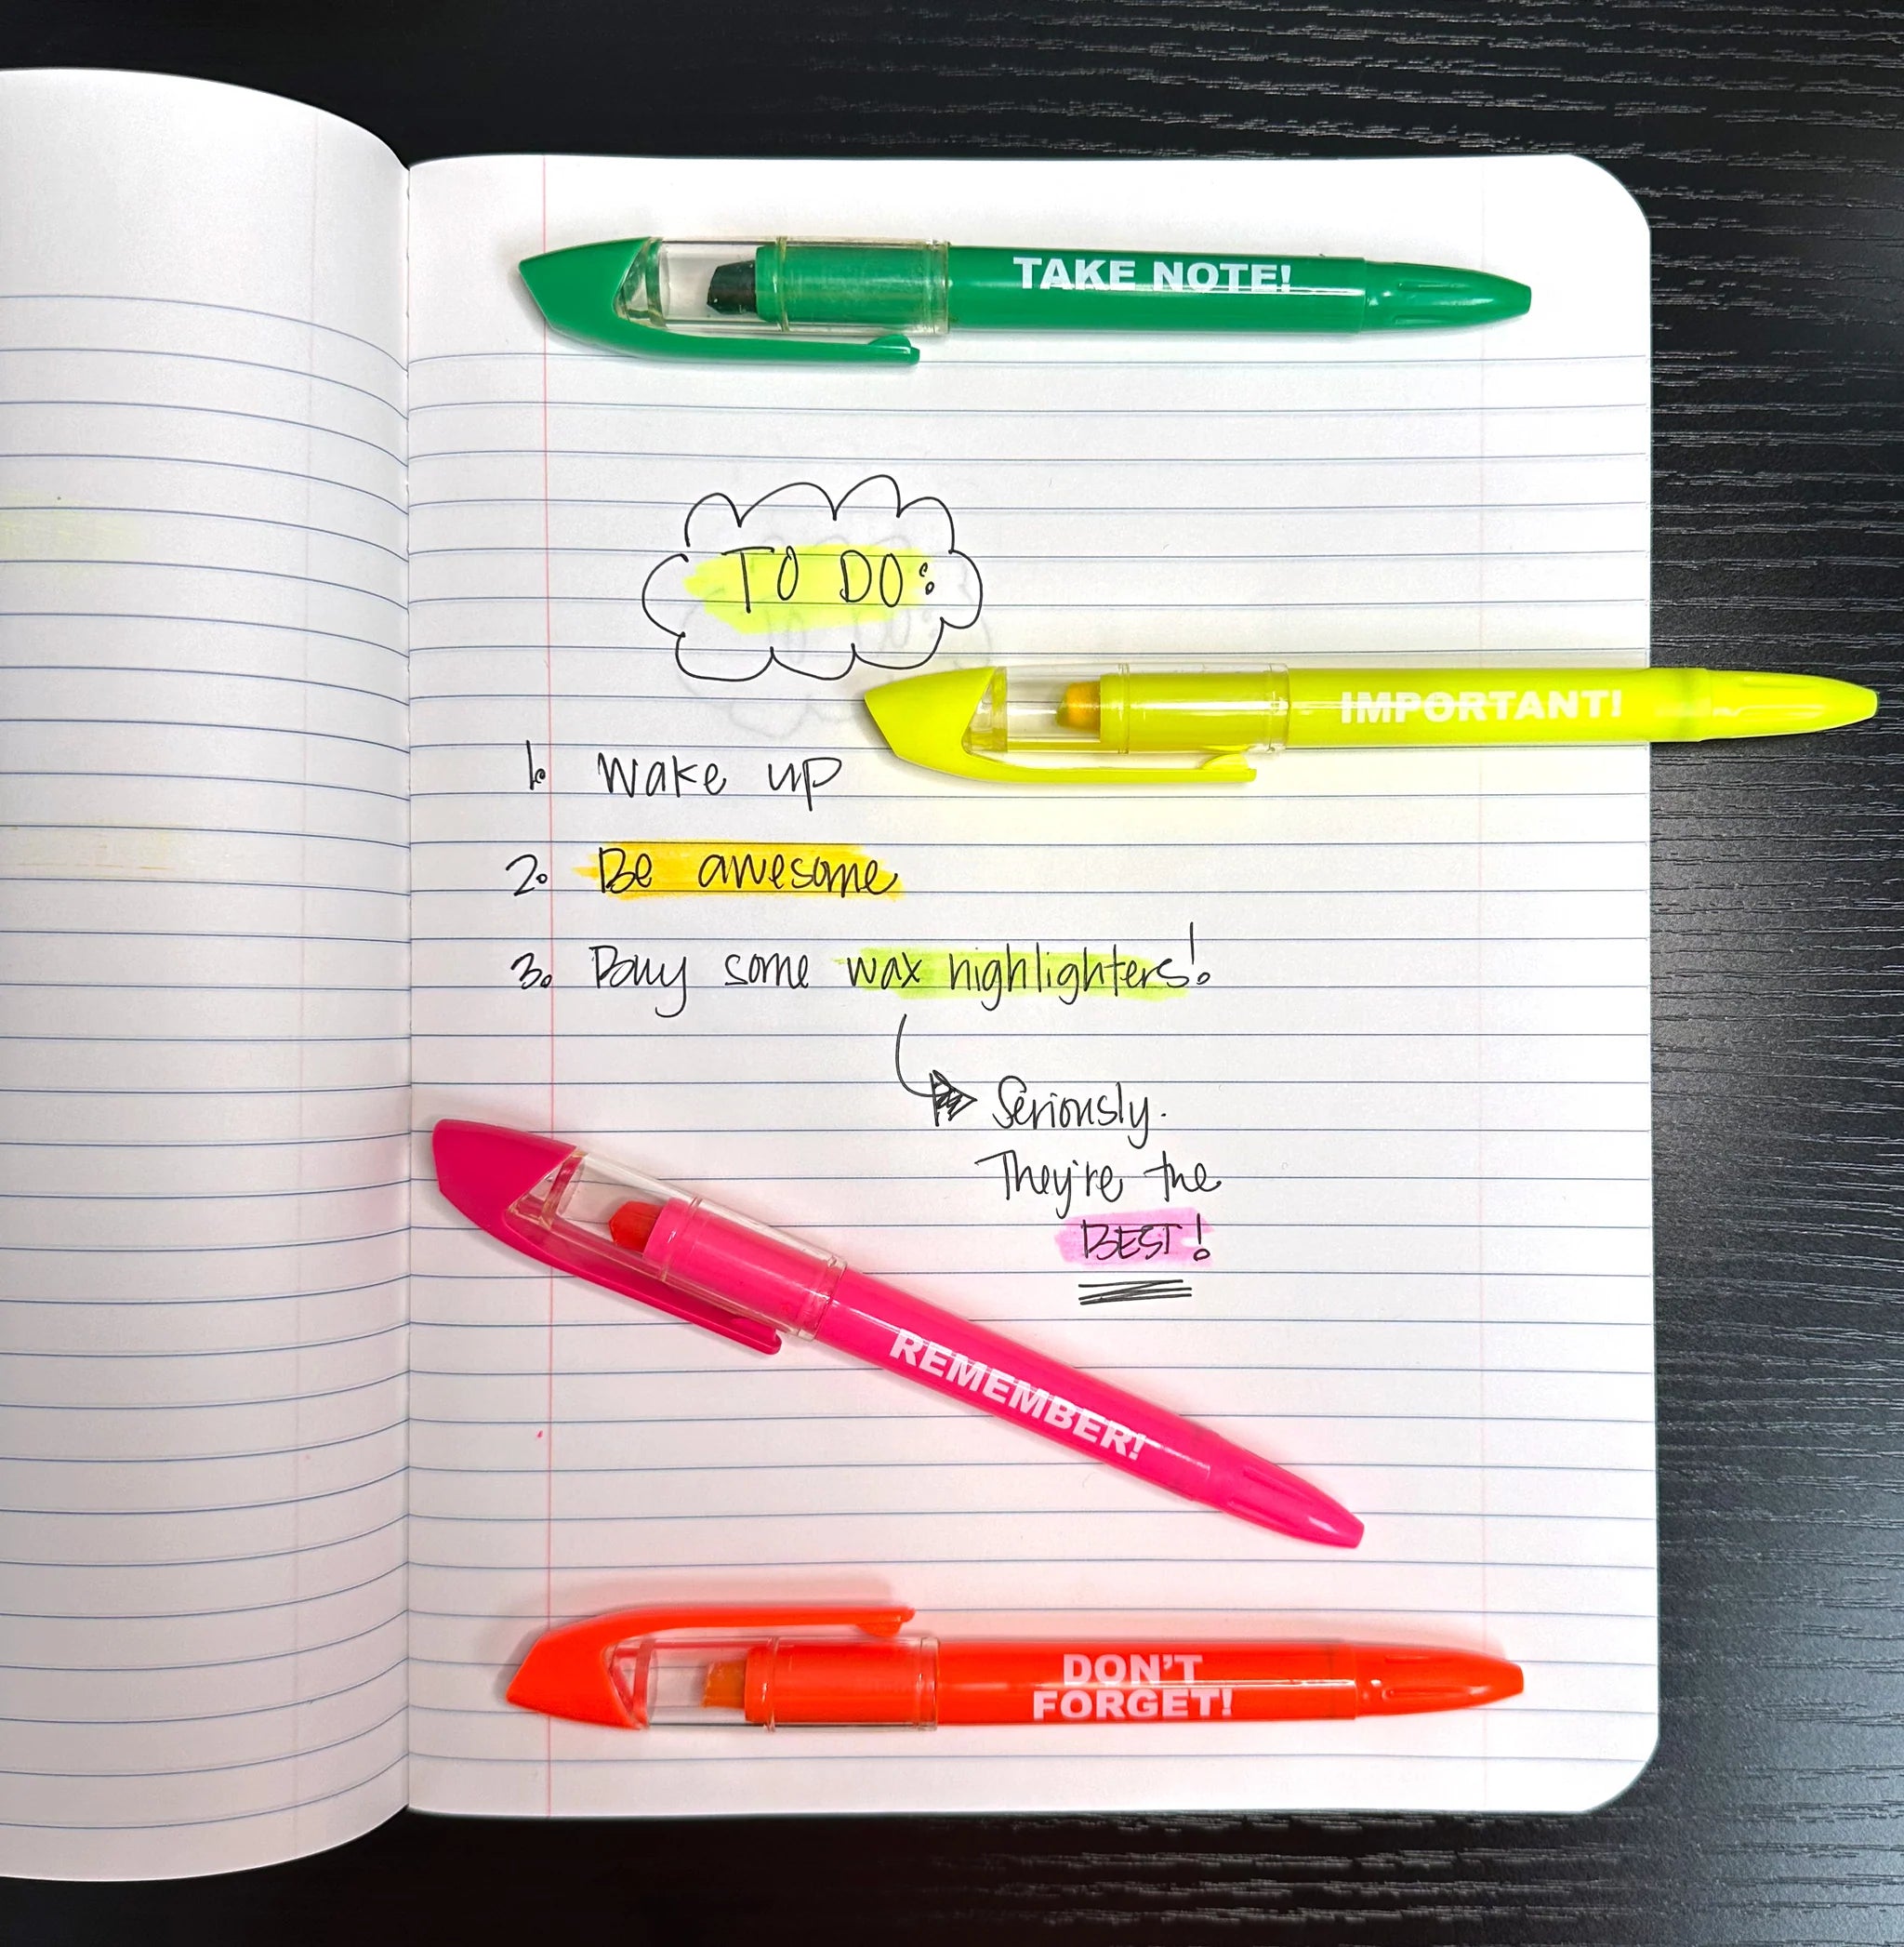 TAKE NOTE!
TO DO:
IMPORTANT!
1. Wake up
2. Be awesome
3. Buy some wax highlighters!
Seriously.
They're the
BEST!
REMEMBER!
DON'T
FORGET!